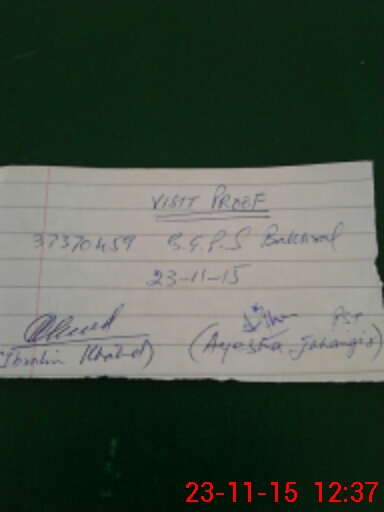 VISIT PROOF
37370459 G.G.P.S Bakhwal
23-11-15
PST
(Ibrahim Khalid) (Ayesha Jahangir)
23-11-15 12:37